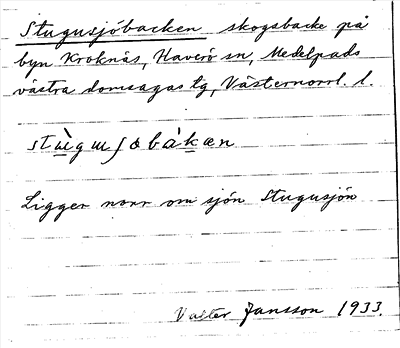 Stugusjöbacken skogsbacke på
byn Kroknäs, Haverö sn, Medelpads
västra domsagas tg, Västernorrl. l.
Ligger norr om sjön Stugusjön
Valter Jansson 1933.